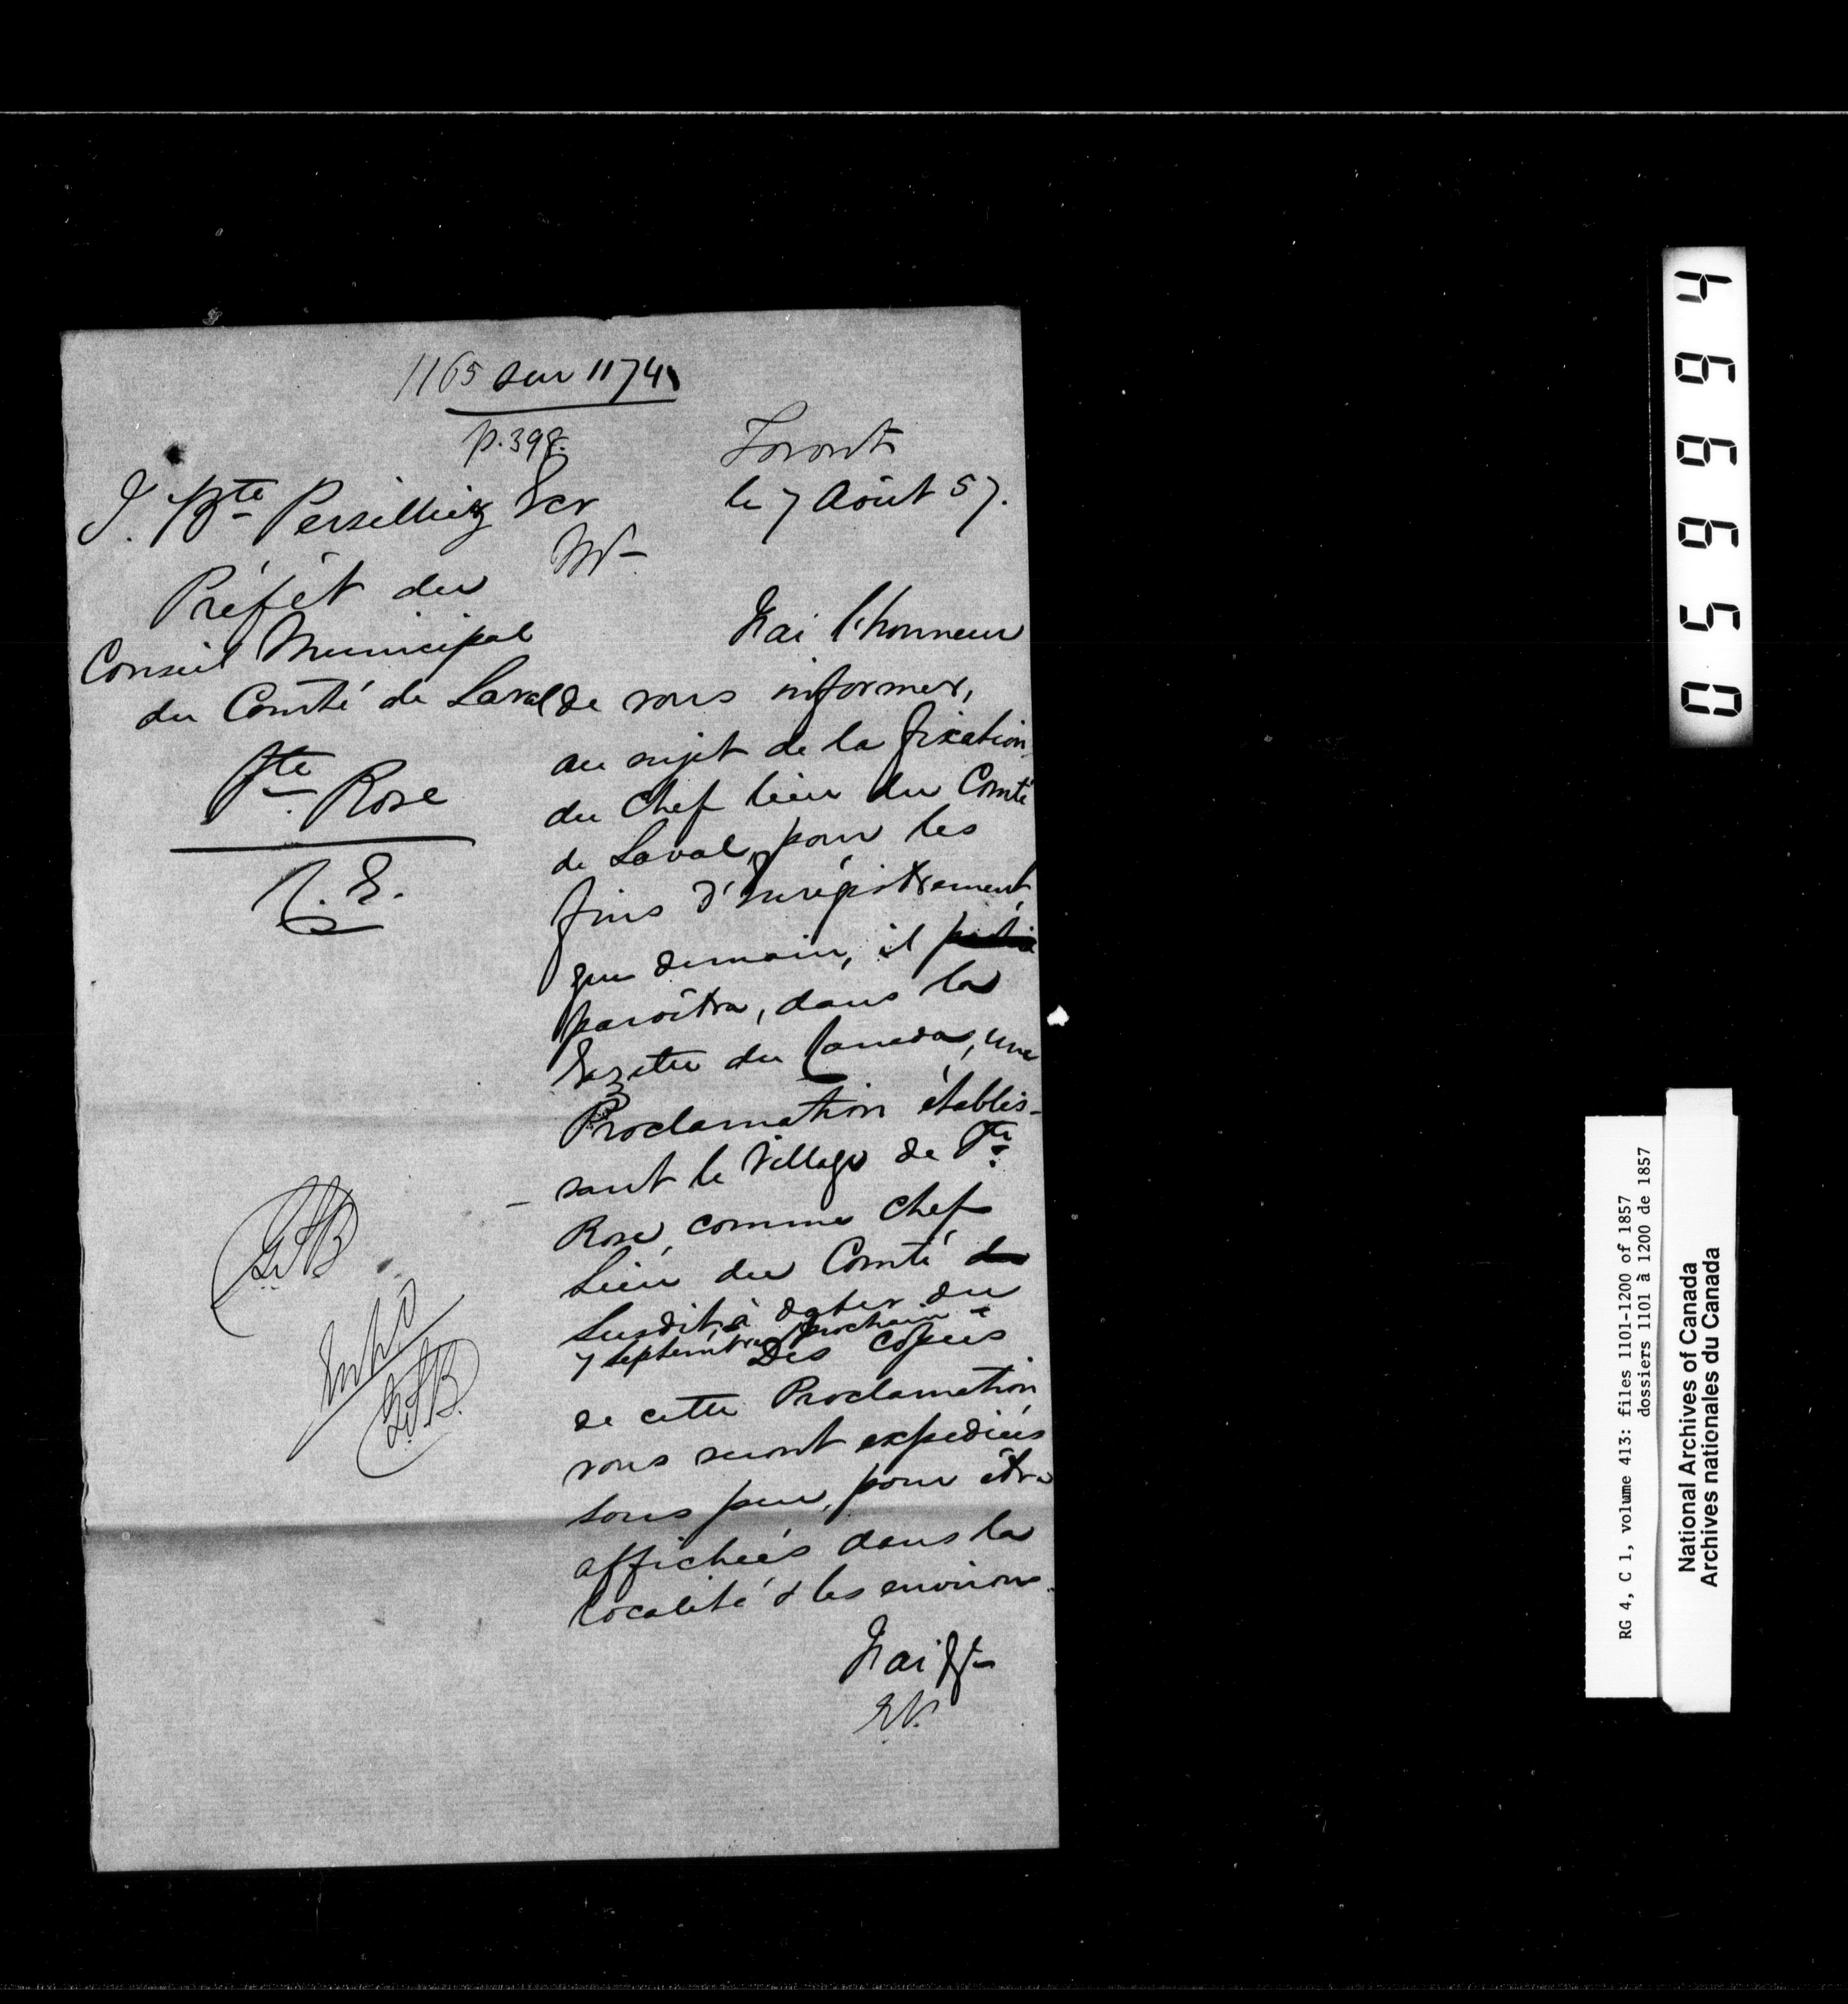 1165 sur 1174
p. 398.
Toronto
le 7 Août 57.
J. Bte Persillier Ecr
Mr
Préfèt du
Conseil Municipal
du Comté de Laval
Ste Rose
C. E.
J'ai l'honneur
de vous informer,
au sujet de la fixation
du Chef lieu du Comté
de Laval, pour les
fins d'Enrégistrement
que demain, il
paroîtra, dans la
Gazette du Canada, une
Proclamation établis-
sant le Village de Ste
Rose, comme Chef
Lieu du Comté de
Susdit, à dater du
7 Septembre prochain
Des copies
de cette Proclamation
vous seront expédiées
sous peu, pour être
affichées dans la
localité & les environs.
J'ai &c
E.P.
056664
RG 4, C 1, volume 413: files 1101-1200 of 1857
dossiers 1101 à 1200 de 1857
National Archives of Canada
Archives nationales du Canada